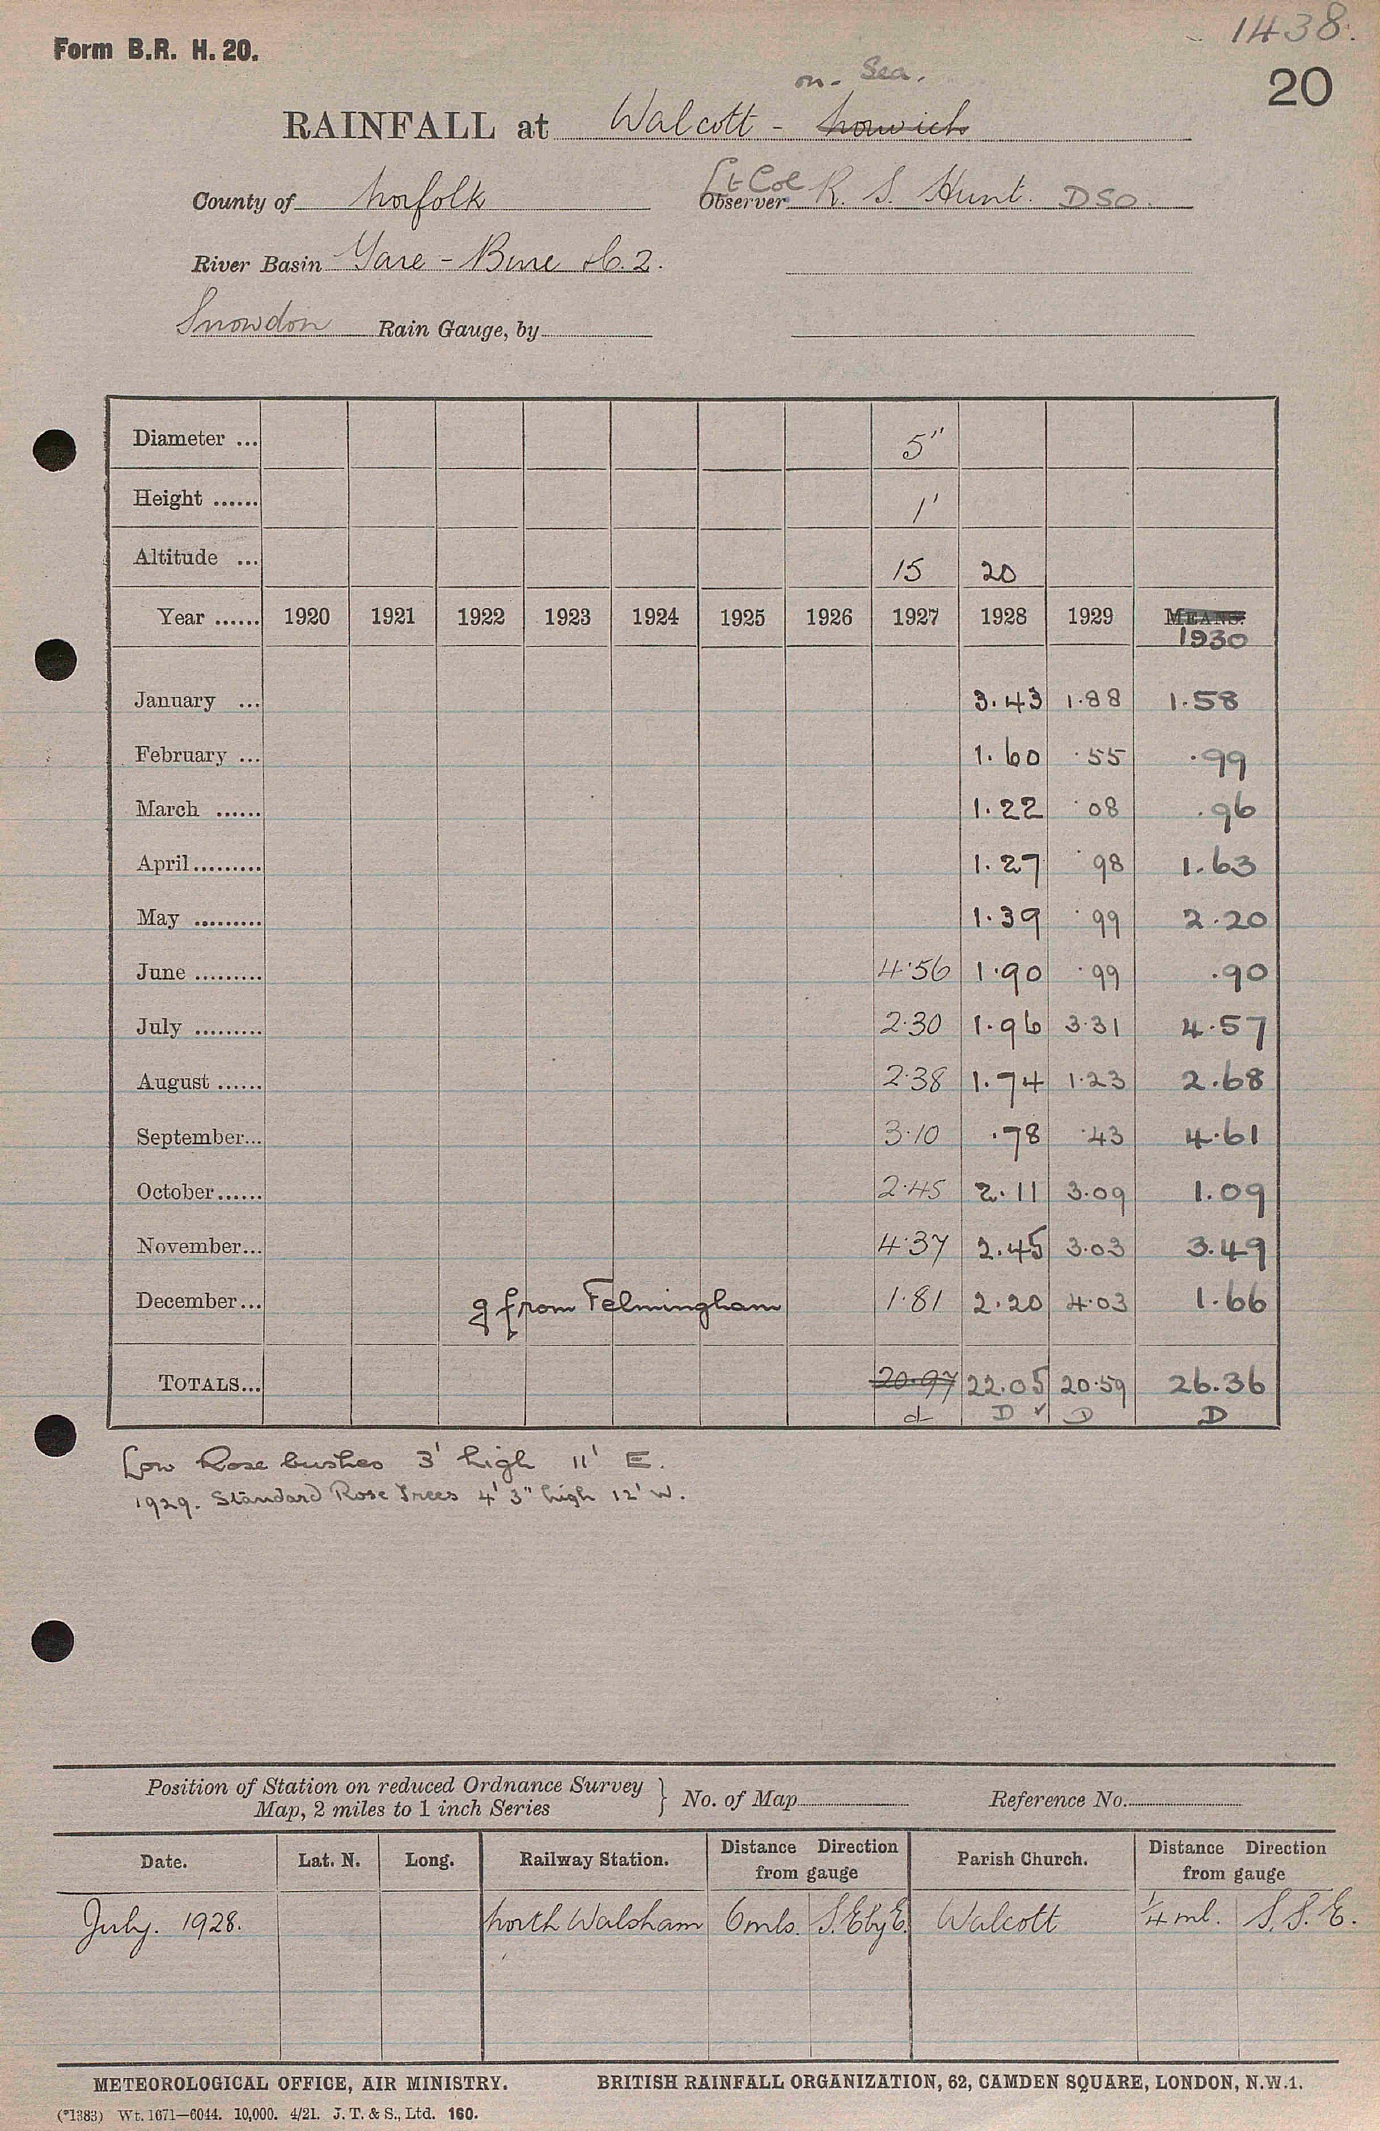 1438.
Form B.R. H. 20.
20
on - Sea.
RAINFALL at Walcott - Norwich
County of Norfolk Lt Col Observer R. S. Hunt. DSO.
River Basin Yare - Bure &c. 2.
Snowdon Rain Gauge, by
Diameter ... 5"
Height ...... 1'
Altitude ... 15 20
Year ...... 1920 1921 1922 1923 1924 1925 1926 1927 1928 1929 MEANS.
1930
January ... 3.43 1.88 1.58
February ... 1.60 .55 .99
March ...... 1.22 .08 .96
April ......... 1.27 .98 1.63
May ......... 1.39 .99 2.20
June ......... 4.56 1.90 .99 .90
July ......... 2.30 1.96 3.31 4.57
August ...... 2.38 1.74 1.23 2.68
September... 3.10 .78 .43 4.61
October...... 2.45 2.11 3.09 1.09
November... 4.37 2.45 3.03 3.49
December... g from Felmingham 1.81 2.20 4.03 1.66
TOTALS... 20.97 22.05 20.59 26.36
d D ✓ D D
Low Rose bushes 3' high 11' E.
1929. Standard Rose Trees 4' 3" high 12' W.
Position of Station on reduced Ordnance Survey
Map, 2 miles to 1 inch Series } No. of Map Reference No.
Date. Lat. N. Long. Railway Station. Distance Direction from gauge Parish Church. Distance Direction from gauge
July. 1928. North Walsham 6 mls. S.E by E. Walcott 1/4 ml. S.S.E.
METEOROLOGICAL OFFICE, AIR MINISTRY. BRITISH RAINFALL ORGANIZATION, 62, CAMDEN SQUARE, LONDON, N.W.1.
(*1383) Wt. 1671—6044. 10,000. 4/21. J. T. & S., Ltd. 160.